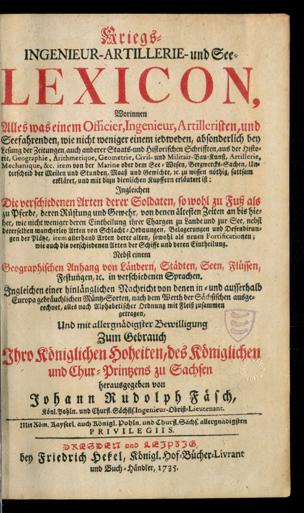 Kriegs-
INGENIEUR-ARTILLERIE- und See-
LEXICON,
Worinnen
Alles was einem Officier, Ingenieur, Artilleristen, und
Seefahrenden, wie nicht weniger einem iedweden, absonderlich bey
Lesung der Zeitungen, auch anderer Staats- und Historischen Schrifften, aus der Histo-
rie, Geographie, Arithmetique, Geometrie, Civil- und Militair-Bau-Kunst, Artillerie,
Mechanique, &c. item von der Marine oder dem See-Wesen, Bergwercks-Sachen, Un-
terscheid der Meilen und Stunden, Maaß und Gewichte, ꝛc. zu wissen nöthig, sattsam
erkläret, und mit dazu dienlichen Kupffern erläutert ist:
Ingleichen
Die verschiedenen Arten derer Soldaten, so wohl zu Fuß als
zu Pferde, deren Rüstung und Gewehr, von denen ältesten Zeiten an bis hie-
her, wie nicht weniger deren Eintheilung ihrer Chargen zu Lande und zur See, nebst
dererselben mancherley Arten von Schlacht-Ordnungen, Belagerungen und Defendirun-
gen der Plätze, item allerhand Arten derer alten, sowohl als neuen Fortificationen;
wie auch die verschiedenen Arten der Schiffe und deren Eintheilung.
Nebst einem
Geographischen Anhang von Ländern, Städten, Seen, Flüssen,
Festungen, ꝛc. in verschiedenen Sprachen.
Ingleichen einer hinlänglichen Nachricht von denen in- und ausserhalb
Europa gebräuchlichen Müntz-Sorten, nach dem Werth der Sächsischen ausge-
rechnet, alles nach Alphabetischer Ordnung mit Fleiß zusammen
getragen,
Und mit allergnädigster Bewilligung
Zum Gebrauch
Ihro Königlichen Hoheiten, des Königlichen
und Chur-Printzens zu Sachsen
herausgegeben von
Johann Rudolph Fäsch,
Königl. Pohln. und Churfl. Sächsis. Ingenieur-Obrist-Lieutenant.
Mit Röm. Kayserl. auch Königl. Pohln. und Churfl. Sächs. allergnädigsten
PRIVILEGIIS.
DRESDEN und LEIPZIG,
bey Friedrich Hekel, Königl. Hof-Bücher-Livrant
und Buch-Händler, 1735.